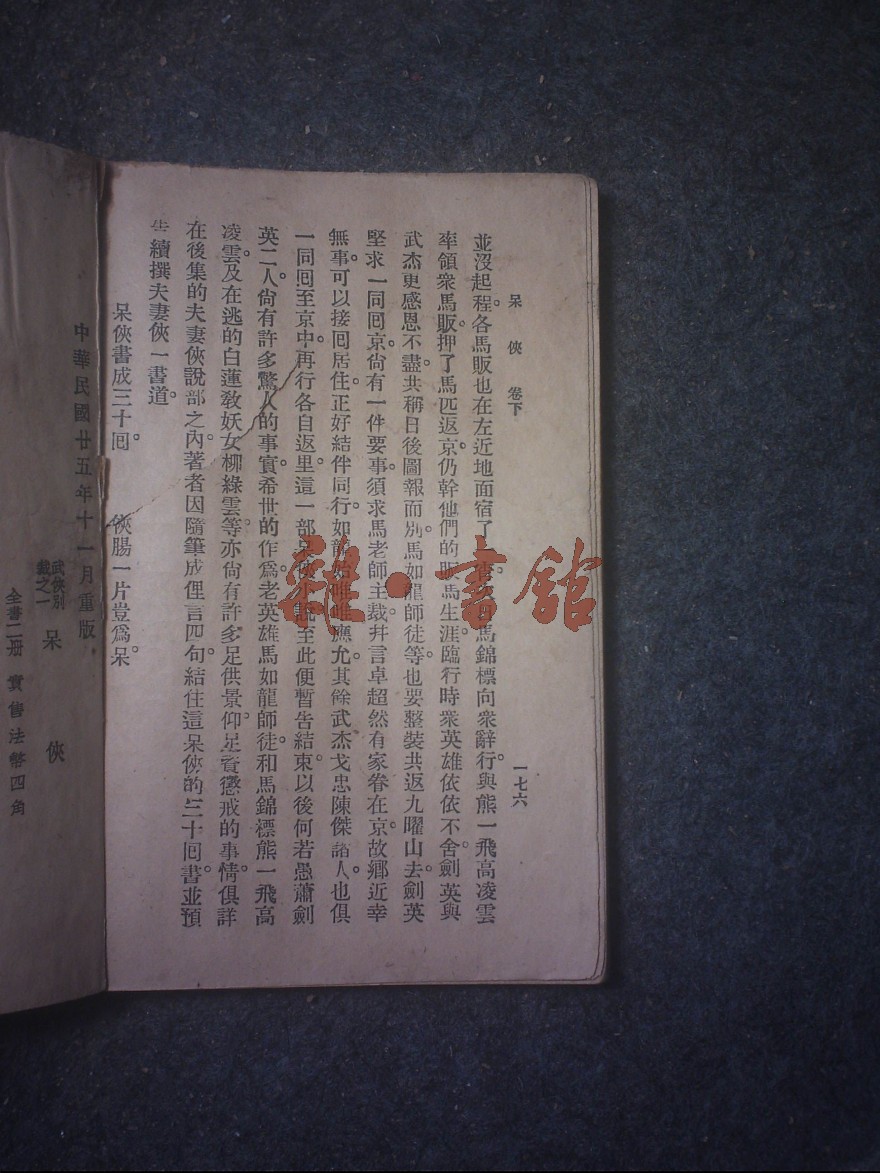 呆俠 卷下 一七六
並沒起程。各馬販也在左近地面宿了 馬錦標向衆辭行。與熊一飛高凌雲
率領衆馬販。押了馬匹返京。仍幹他們的販馬生涯。臨行時衆英雄依依不舍。劍英與
武杰更感恩不盡。共稱日後圖報而別。馬如龍師徒等也要整裝共返九曜山去。劍英
堅求一同囘京。尙有一件要事。須求馬老師主裁。幷言卓超然有家眷在京。故鄕近幸
無事。可以接囘居住。正好結伴同行。如龍 應允。其餘武杰戈忠陳傑諸人。也俱
一同囘至京中。再行各自返里。這一部呆俠小說。至此便暫告結束。以後何若愚蕭劍
英二人。尙有許多驚人的事實。希世的作爲。老英雄馬如龍師徒。和馬錦標熊一飛高
凌雲。及在逃的白蓮敎妖女柳綠雲等。亦尙有許多足供景仰。足資懲戒的事情。俱詳
在後集的夫妻俠說部之內。著者因隨筆成俚言四句。結住這呆俠的三十囘書。並預
告續撰夫妻俠一書道。
呆俠書成三十囘。 俠腸一片豈爲呆。
中華民國廿五年十一月重版
武俠別裁之一 呆俠
全書二册 實售法幣四角
雜·書館